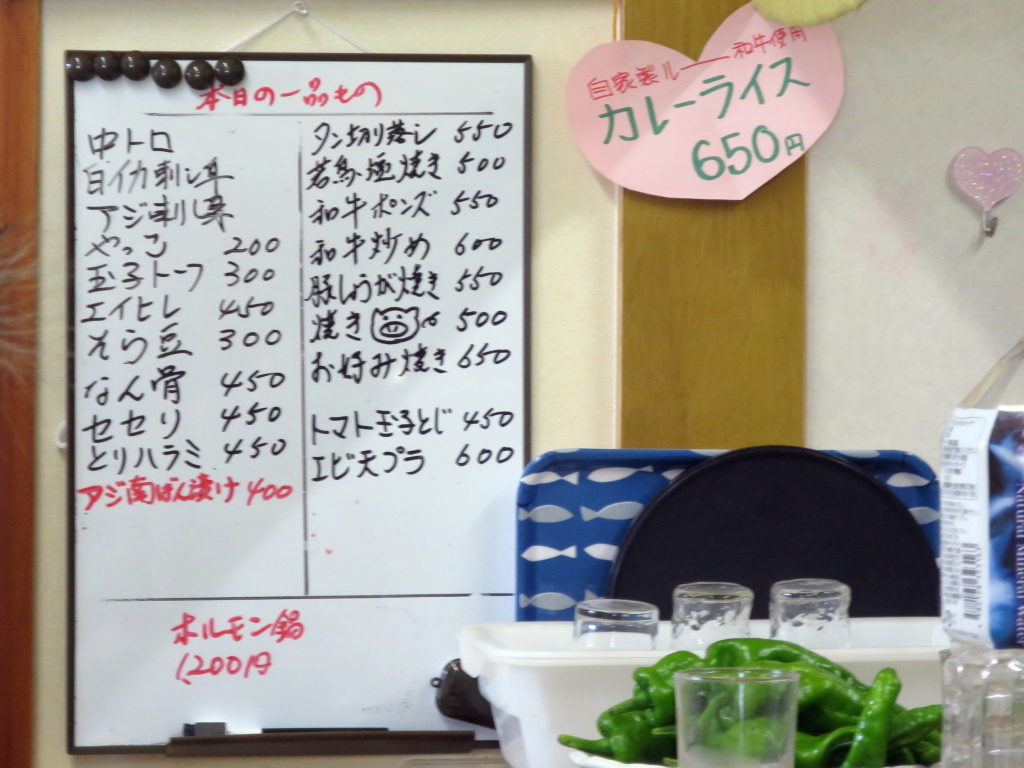 本日の一品もの
中トロ
白イカ刺し身
アジ刺し身
やっこ 200
玉子トーフ 300
エイヒレ 450
そら豆 300
なん骨 450
セセリ 450
とりハラミ 450
アジ南ばん漬け 400
タン切り落し 550
若鳥塩焼き 500
和牛ポンズ 550
和牛炒め 600
豚しょうが焼き 550
焼き 500
お好み焼き 650
トマト玉子とじ 450
エビ天プラ 600
ホルモン鍋
1,200円
自家製ルー 和牛使用
カレーライス
650円
Natural Mineral Water